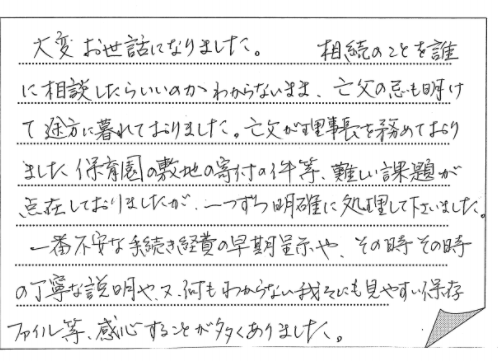 大変お世話になりました。　　相続のことを誰
に相談したらいいのかわからないまま、亡父の忌も明け
て途方に暮れておりました。亡父が理事長を務めており
ました保育園の敷地の寄付の件等、難しい課題が
点在しておりましたが、一つずつ明確に処理して下さいました。
一番不安な手続き経費の早期呈示や、その時その時
の丁寧な説明や、又、何もわからない我々にも見やすい保存
ファイル等、感心することが多くありました。